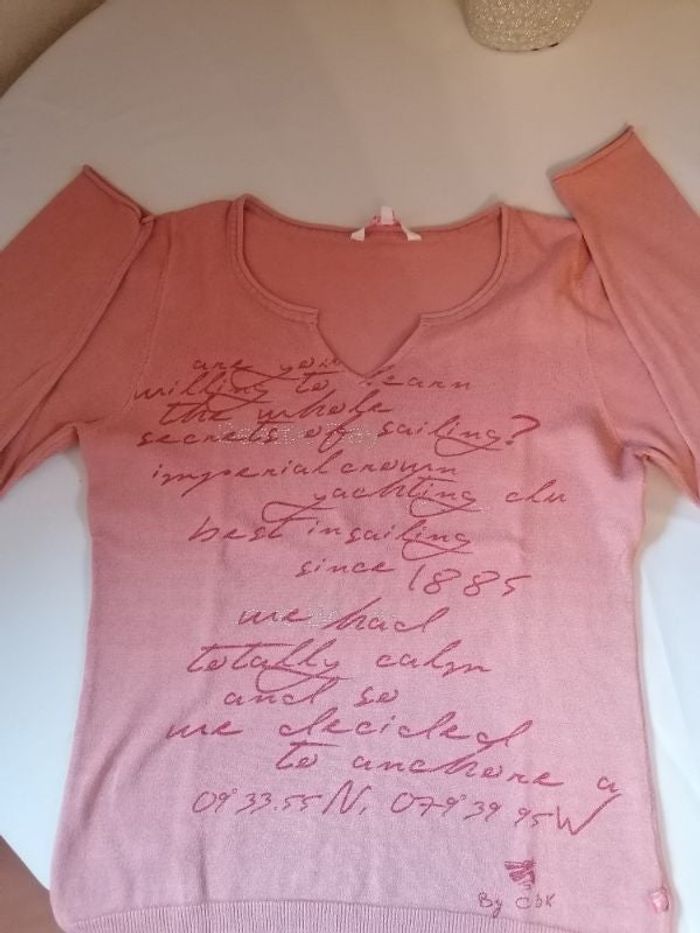 are you
willing to learn
the whole
secrets of sailing?
imperial crown
yachting clu
best in sailing
since 1885
we had
totally calm
and so
we decided
to anchore a
09°33.55 N, 079°39 95 W
By CBK